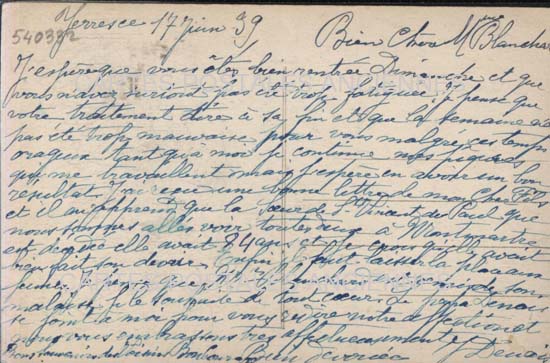 540332
Yerres ce 17 Juin 39
Bien Chère Mme Blanchar
J'espère que vous êtes bien rentrée Dimanche et que
vous n'avez surtout pas été trop fatiguée. Je pense que
votre traitement tire à sa fin et que la semaine n'a
pas été trop mauvaise pour vous malgré ces temps
orageux tant qu'à moi je continue mes piqures
qui me travaillent mais j'espère en avoir un bon
résultat. J'ai reçu une bonne lettre de mon Cher Fils
et il m'apprend que la Sœur de St Vincent de Paul que
nous sommes allés voir tous les deux à Montmartre
est décédée elle avait 84 ans et je crois qu'elle avait
bien fait son devoir il faut laisser la place aux
jeunes. J'espère que de son
malaise je le souhaite de tout cœur. Le papa Denais
se joint à moi pour vous notre affection et
nous vous embrassons très affectueusement Denais